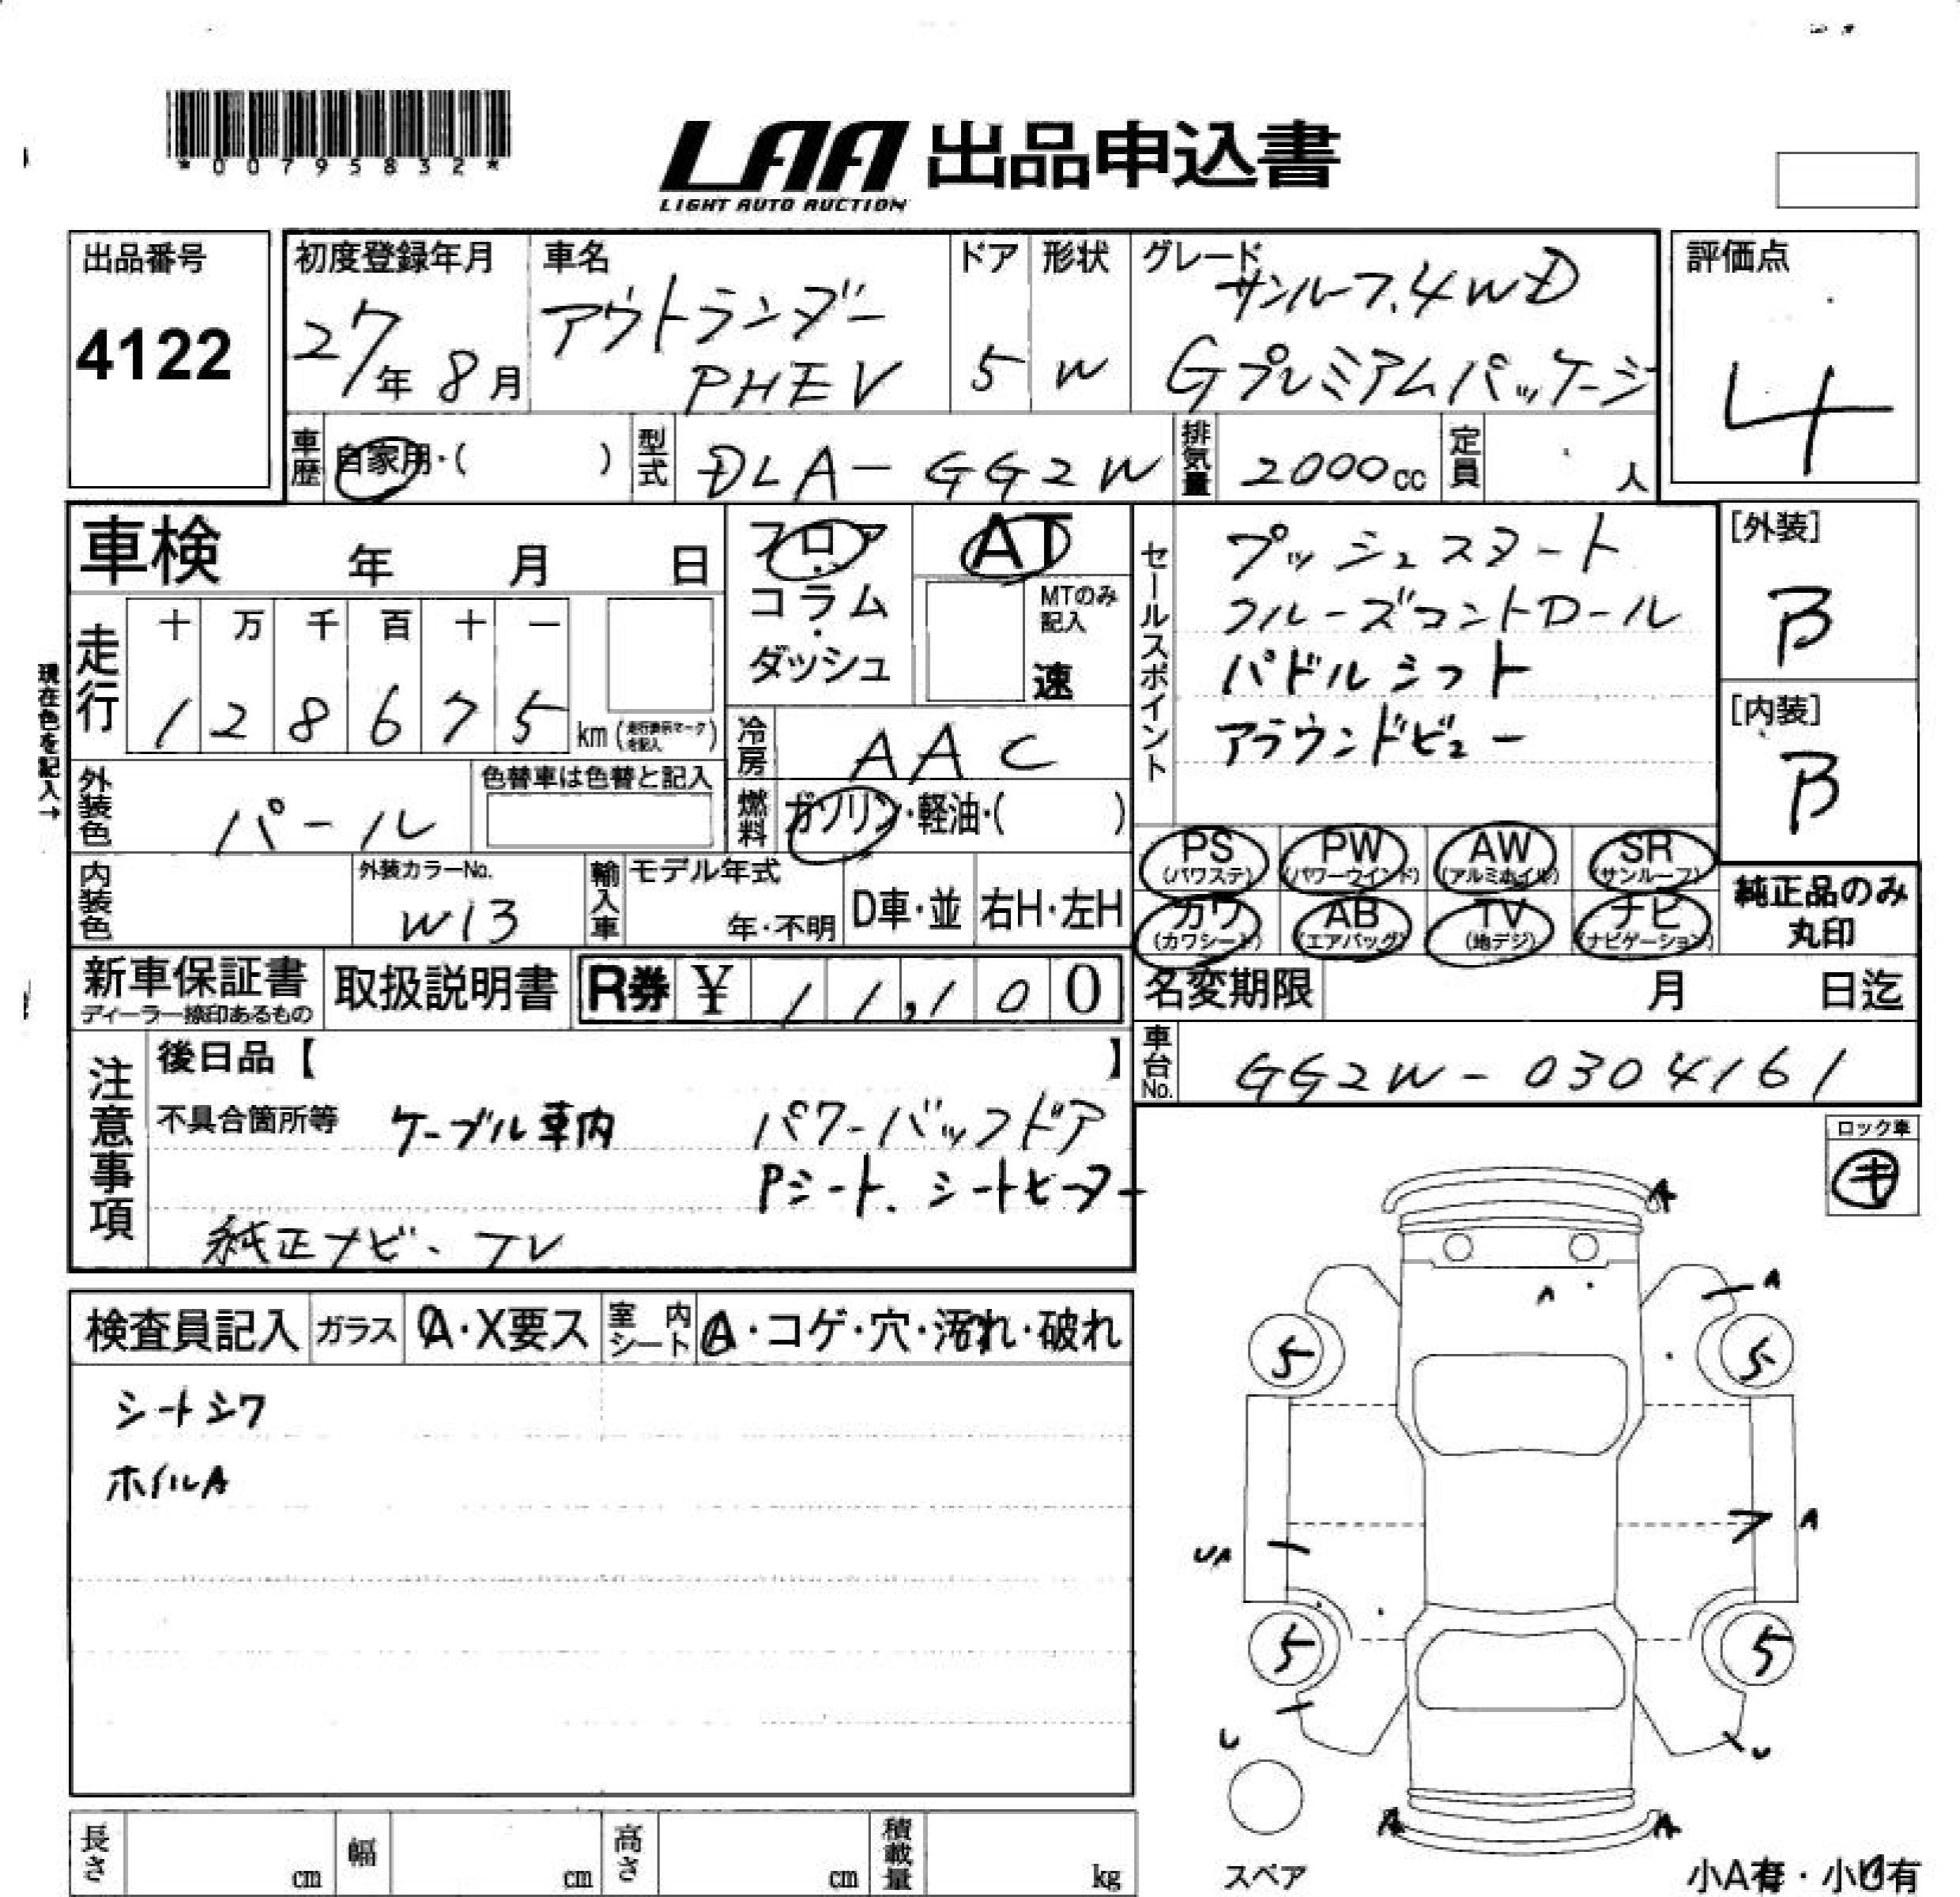 *00795832*
LAA 出品申込書
LIGHT AUTO AUCTION
出品番号
4122
初度登録年月
27年 8月
車名
アウトランダー
PHEV
ドア
5
形状
W
グレード
サンルーフ.4WD
Gプレミアムパッケージ
評価点
4
車歴 自家用・( )
型式 DLA-GG2W
排気量 2000cc
定員 人
車検 年 月 日
フロア
コラム
・
ダッシュ
AT
MTのみ
記入
速
セールスポイント
プッシュスタート
クルーズコントロール
パドルシフト
アラウンドビュー
[外装]
B
[内装]
B
現在色を記入→
走行
十 万 千 百 十 一
1 2 8 6 7 5 km (走行表示マークを記入)
冷房 AAC
燃料 ガソリン・軽油・( )
外装色 パール
色替車は色替と記入
内装色
外装カラーNo.
W13
輸入車
モデル年式
年・不明
D車・並
右H・左H
PS (パワステ)
PW (パワーウインド)
AW (アルミホイル)
SR (サンルーフ)
カワ (カワシート)
AB (エアバッグ)
TV (地デジ)
ナビ (ナビゲーション)
純正品のみ
丸印
新車保証書
ディーラー捺印あるもの
取扱説明書
R券 ¥ 11,100
名変期限 月 日迄
車台No. GG2W-0304161
注意事項
後日品【 】
不具合箇所等 ケーブル車内 パワーバックドア
Pシート、シートヒーター
純正ナビ、TV
ロック車
キ
検査員記入
ガラス A・X要ス
室内シート A・コゲ・穴・汚れ・破れ
シートシワ
ホイルA
A
A
A
5
5
A
UA
5
5
U
U
A
A
スペア
小A有・小U有
長さ cm
幅 cm
高さ cm
積載量 kg